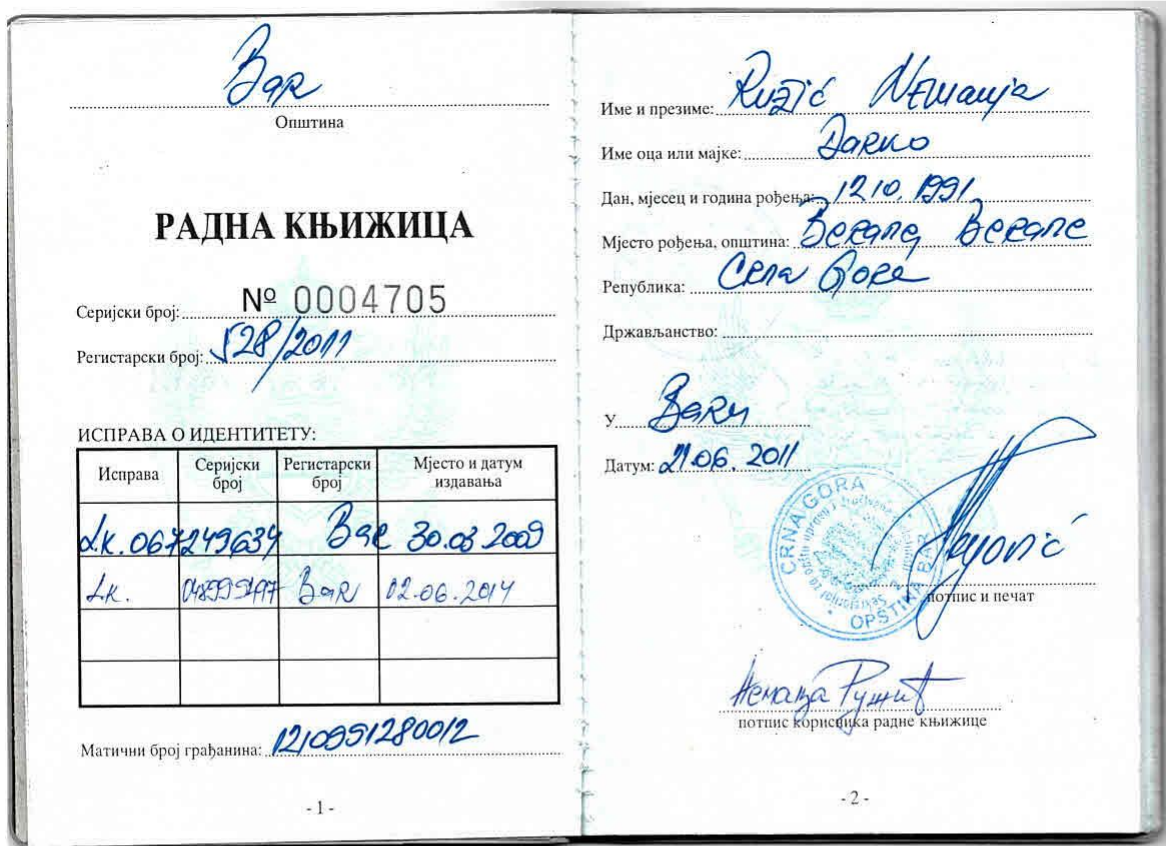 Bar
Општина
РАДНА КЊИЖИЦА
Серијски број: № 0004705
Регистарски број: 528/2011
ИСПРАВА О ИДЕНТИТЕТУ:
Исправа Серијски број Регистарски број Мјесто и датум издавања
L.k. 067249634 Bar 30.03.2009
L.k. Bar 02.06.2014
Матични број грађанина:
- 1 -
Име и презиме: Ružić Nemanja
Име оца или мајке: Darko
Дан, мјесец и година рођења: 12 10. 1991
Мјесто рођења, општина: Berane, Berane
Република: Crna Gora
Држављанство:
У Baru
Датум: 21.06. 2011
CRNA GORA
OPŠTINA BAR
потпис и печат
Немања Ружић
потпис корисника радне књижице
- 2 -